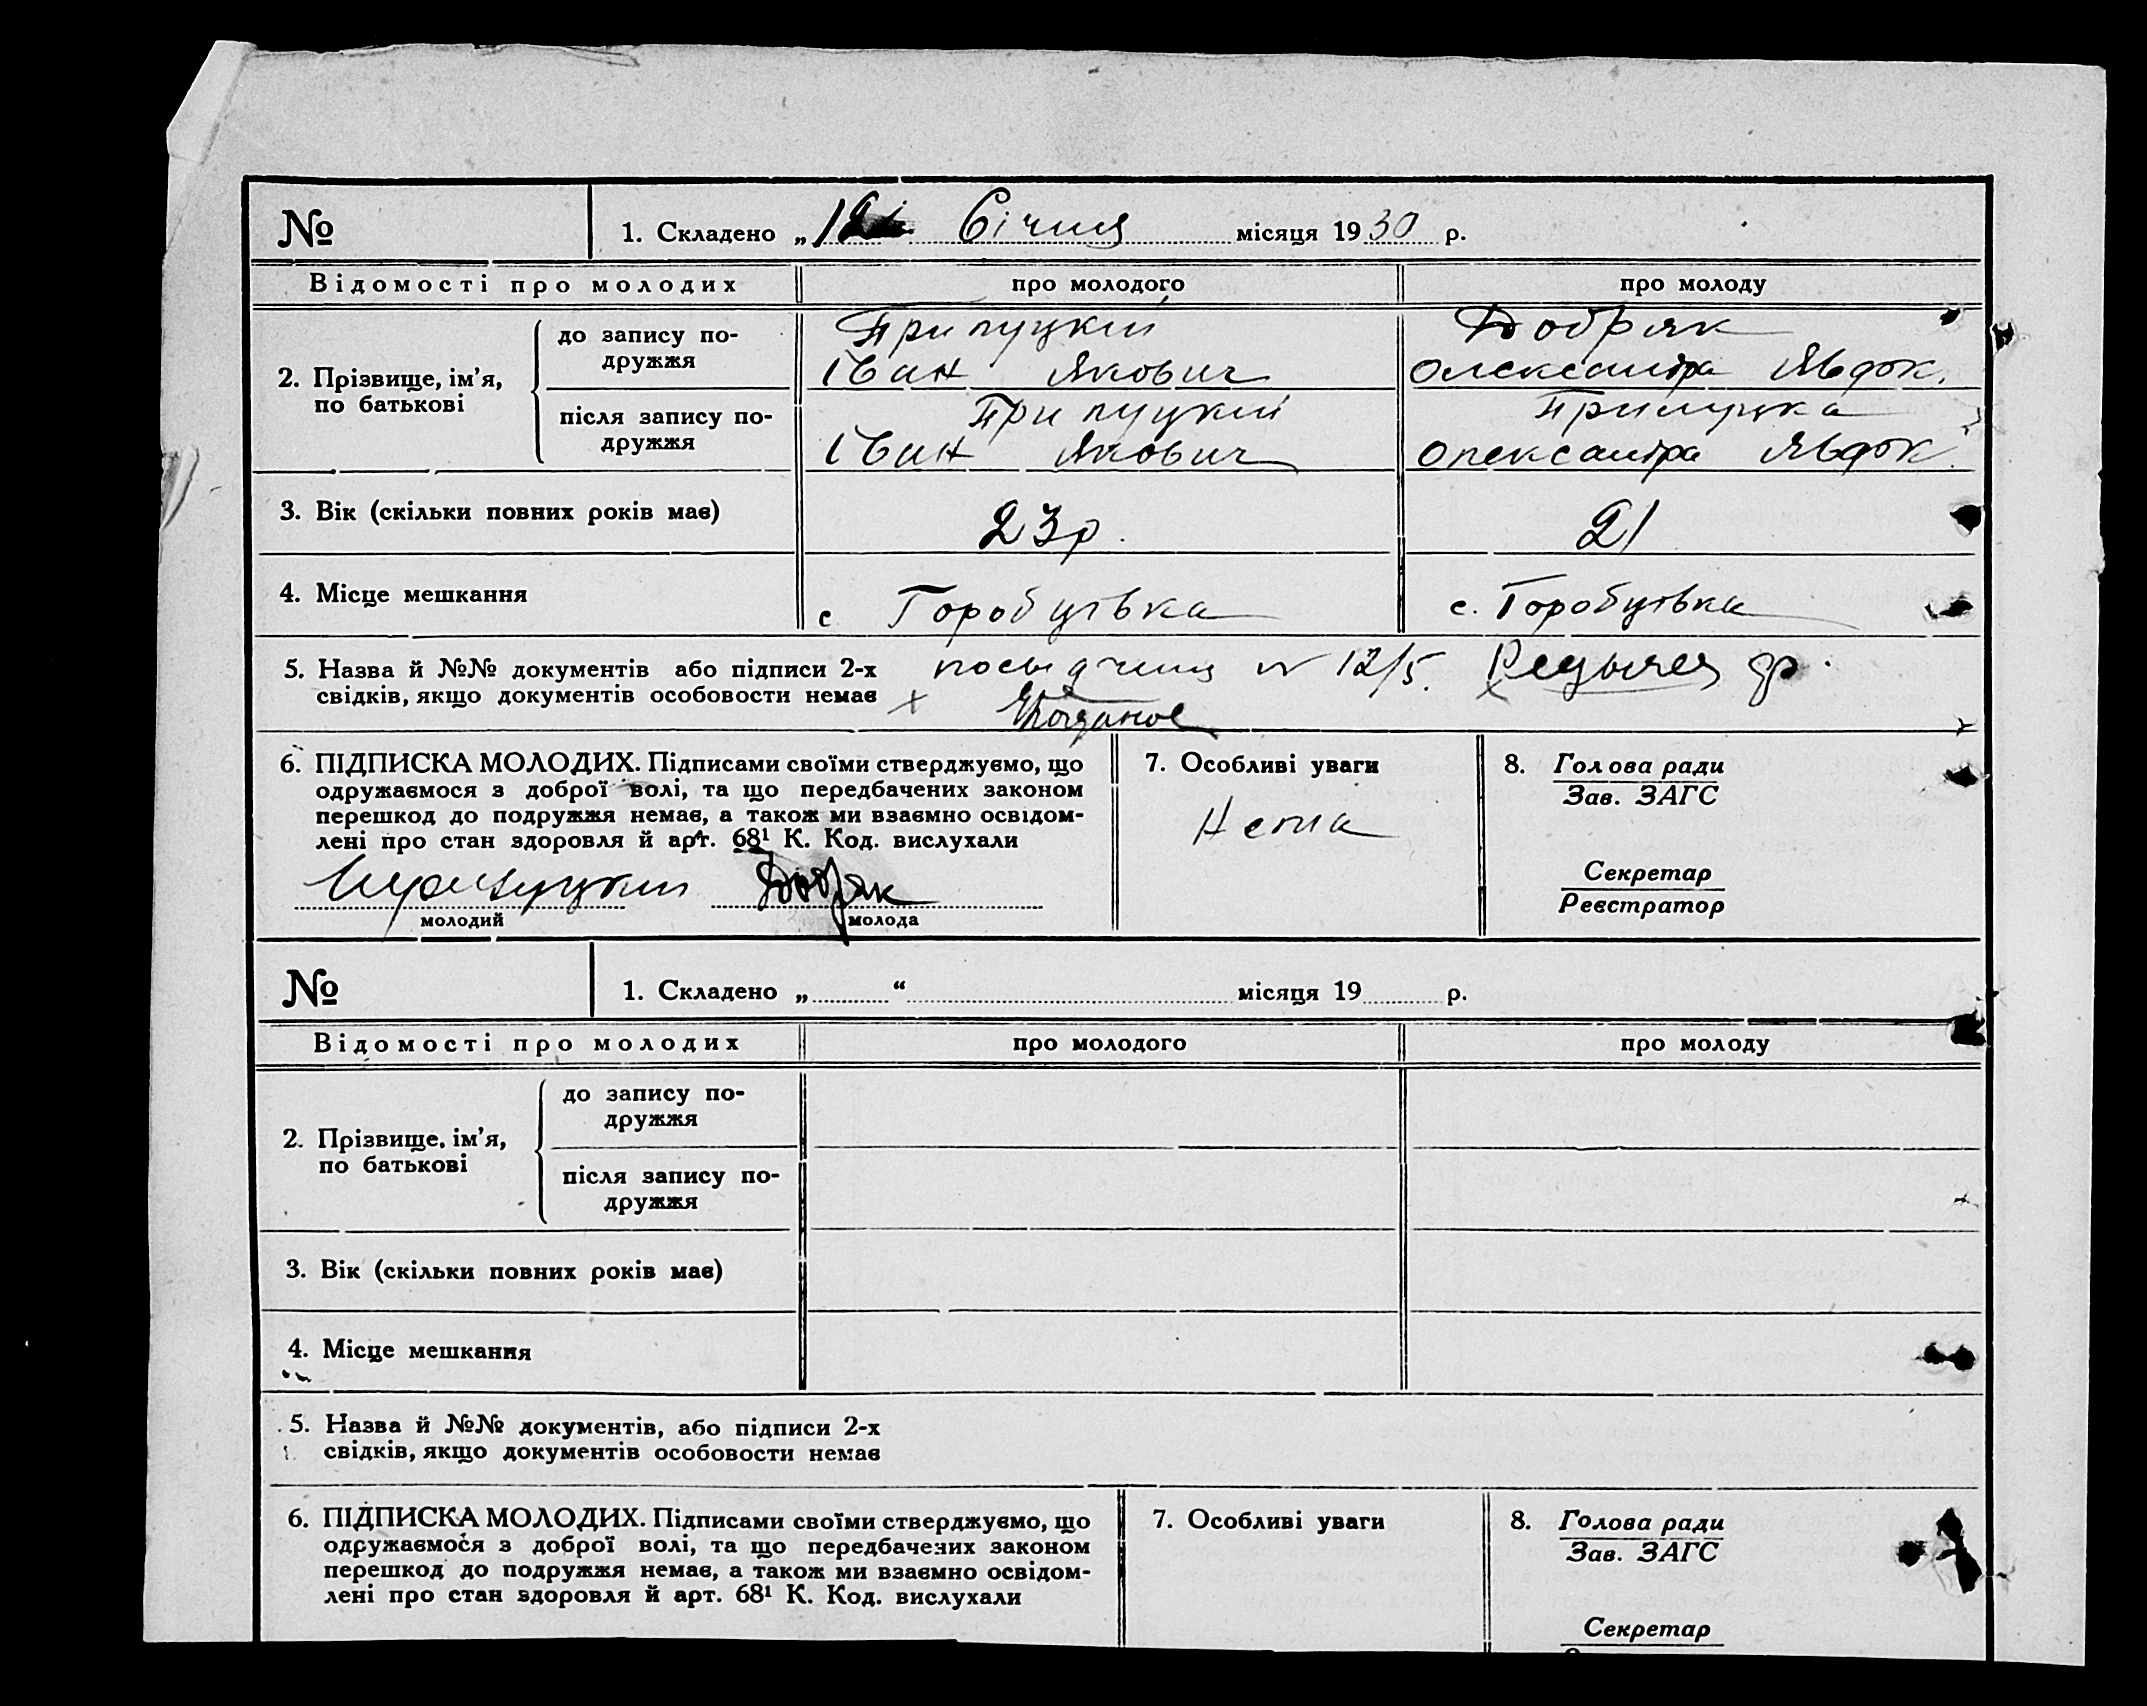 № 1. Складено „ 12 Січня місяця 1930 р.
Відомості про молодих про молодого про молоду
2. Прізвище, ім’я, по батькові
до запису по-
дружжя
Прилуцкий Добряк
Іван Якович Олександра Явдок.
після запису по-
дружжя
Прилуцкий Прилуцка
Іван Якович Олександра Явдок.
3. Вік (скільки повних років має) 23 р. 21
4. Місце мешкання с Горобцівка с. Горобцівка
5. Назва й №№ документів або підписи 2-х
свідків, якщо документів особовости немає
N 12/5.
6. ПІДПИСКА МОЛОДИХ. Підписами своїми стверджуємо, що
одружаємося з доброї волі, та що передбачених законом
перешкод до подружжя немає, а також ми взаємно освідом-
лені про стан здоровля й арт. 68¹ К. Код. вислухали
Прилуцкий Добряк
молодий молода
7. Особливі уваги
Нема
8. Голова ради
Зав. ЗАГС
Секретар
Реєстратор
№ 1. Складено „ “ місяця 19 р.
Відомості про молодих про молодого про молоду
2. Прізвище, ім’я,
по батькові
до запису по-
дружжя
після запису по-
дружжя
3. Вік (скільки повних років має)
4. Місце мешкання
5. Назва й №№ документів, або підписи 2-х
свідків, якщо документів особовости немає
6. ПІДПИСКА МОЛОДИХ. Підписами своїми стверджуємо, що
одружаємося з доброї волі, та що передбачених законом
перешкод до подружжя немає, а також ми взаємно освідом-
лені про стан здоровля й арт. 68¹ К. Код. вислухали
7. Особливі уваги
8. Голова ради
Зав. ЗАГС
Секретар